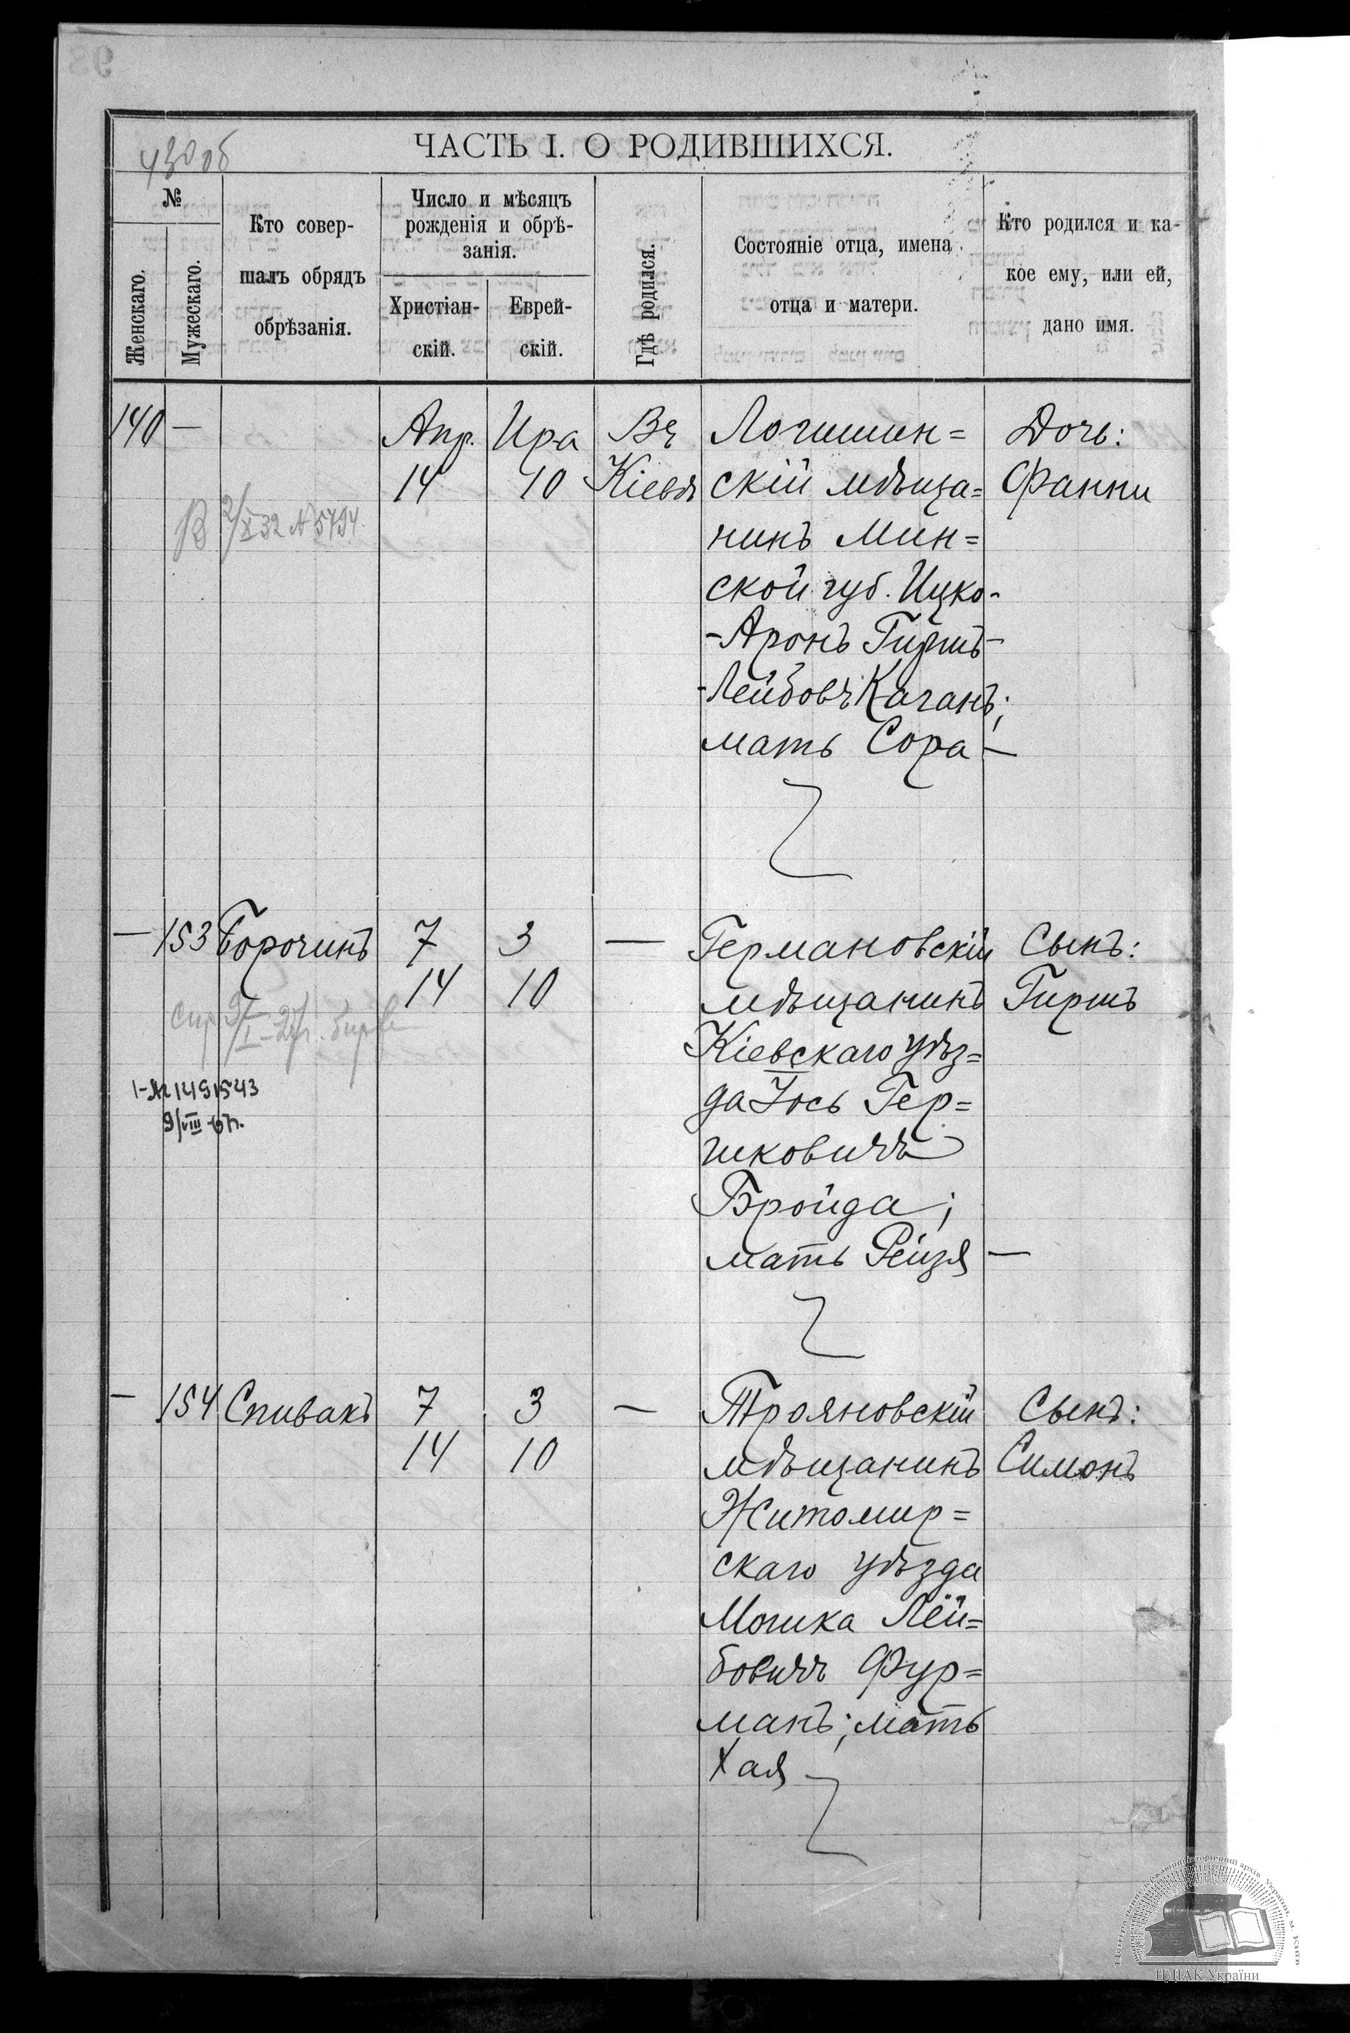 ЧАСТЬ I. О РОДИВШИХСЯ.
№
Женскаго.
Мужескаго.
Кто совер-
шалъ обрядъ
обрѣзанія.
Число и мѣсяцъ
рожденія и обрѣ-
занія.
Христіан-
скій.
Еврей-
скій.
Гдѣ родился.
Состояніе отца, имена
отца и матери.
Кто родился и ка-
кое ему, или ей,
дано имя.
140 —
Апр.
14
Ира
10
Въ
Кіевѣ
Логишин=
скій мѣща=
нинъ Мин=
ской губ. Ицко-
-Аронъ Гиршъ-
-Лейбовъ Каганъ;
мать Сора —
Дочь:
Фанни
— 153
Борочинъ
7
14
3
10
—
Германовскій
мѣщанинъ
Кіевскаго уѣз=
да Іось Гер=
шковичъ
Бройда;
мать Рейзя —
Сынъ:
Гиршъ
1-№1491543
9/VIII-67г.
— 154
Спивакъ
7
14
3
10
—
Трояновскій
мѣщанинъ
Житомир=
скаго уѣзда
Мошка Лей=
бовичъ Фур=
манъ; мать
Хая
Сынъ:
Симонъ
ЦДІАК України